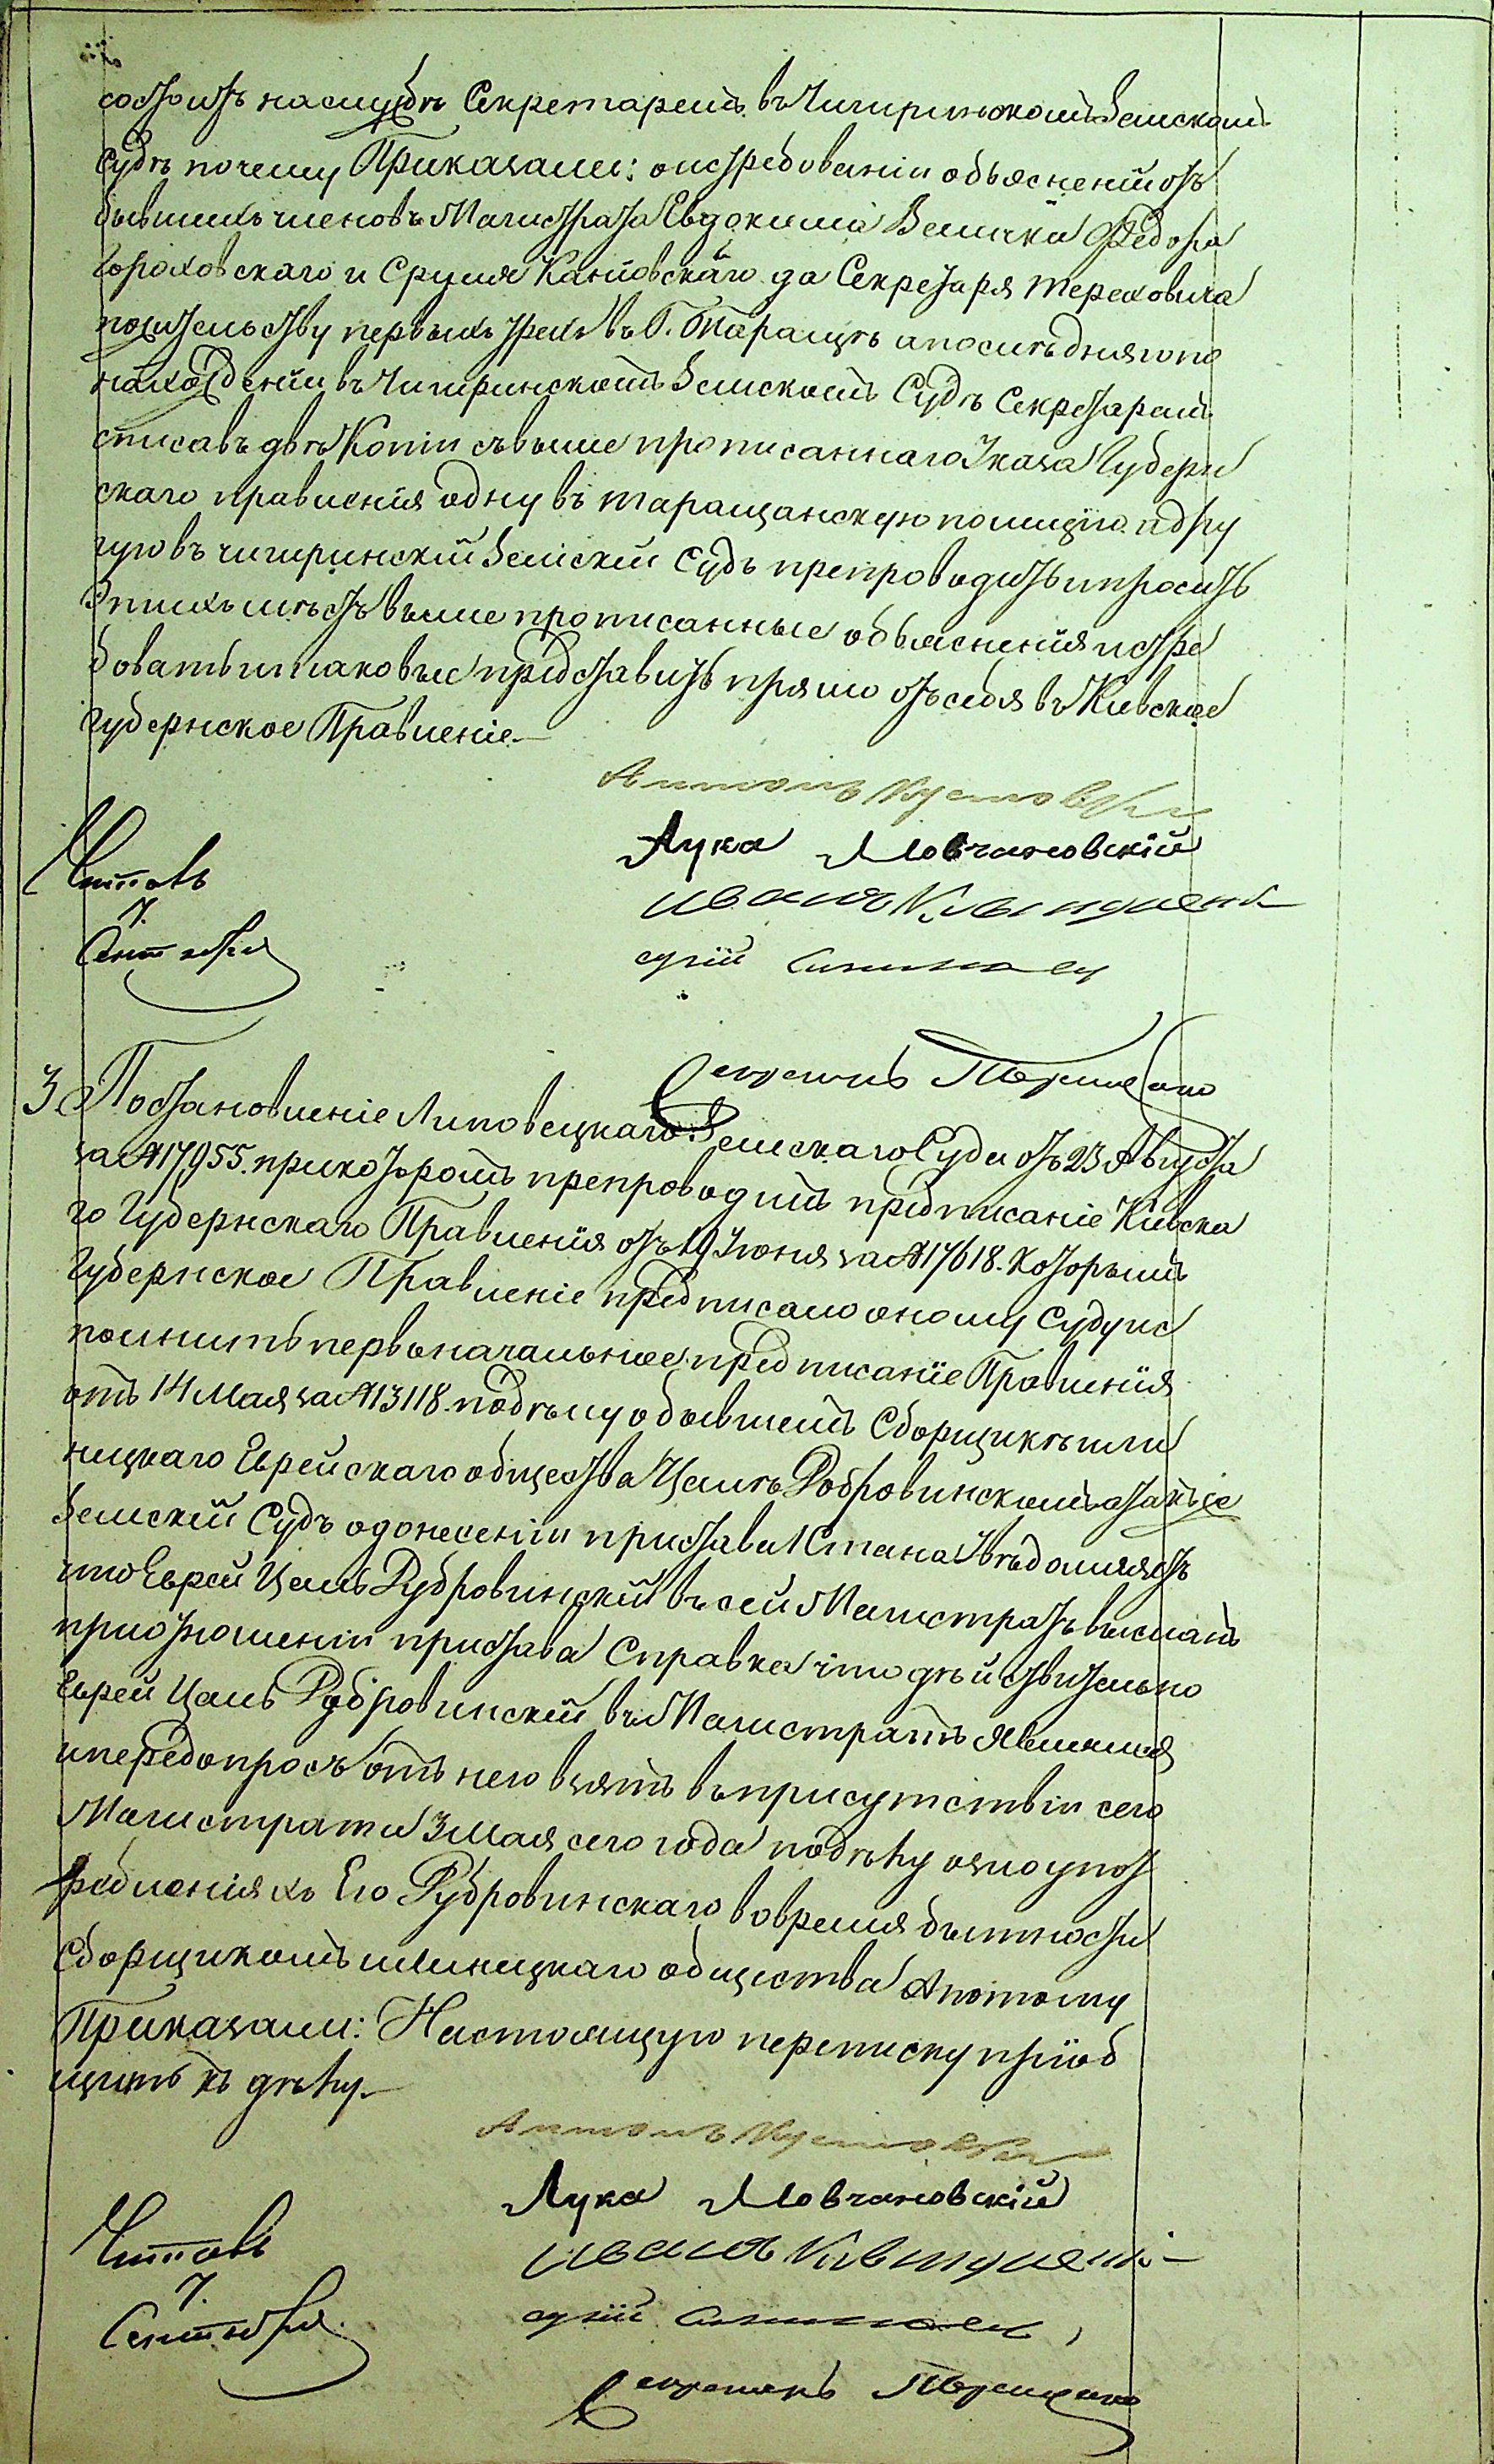 состоитъ на службѣ Секретаремъ въ Чигиринскомъ Земскомъ
Судѣ почему Приказали: о истребованіи объясненій отъ
бывшихъ членовъ Магистрата Евдокима Велички Федора
Гороховскаго и Сруля Каневскаго да Секретаря Тереховича
по жительству первыхъ трехъ въ Г. Таращѣ а послѣдняго по
нахожденію въ Чигиринскомъ Земскомъ Судѣ Секретаремъ
списавъ двѣ Копіи съ выше прописаннаго Указа Губерн
скаго правленія одну въ таращанскую полицію а дру
гую въ чигиринскій Земскій Судъ препроводить и просить
Э тихъ мѣстъ выше прописанные объясненія истре
бовать и таковые представить прямо отъ себя въ Кіевское
Губернское Правленіе
Антонъ
Лука Мовчановскій
Читалъ
Иванъ
7.
Сентября
3. Постановленіе Липовецкаго Земскаго Суда отъ 23 Августа
за № 17955. при которомъ препроводитъ предписаніе Кіевска
го Губернскаго Правленія отъ 19 Іюня за № 17618. Которымъ
Губернское Правленіе предписало оному Суду ис
полнить первоначальное предписаніе Правленія
отъ 14 Мая за № 13118. по дѣлу о бывшемъ Сборщикѣ или
ницкаго Еврейскаго общества Цалѣ Добровинскомъ а также
Земскій Судъ о донесеніи пристава 1 Стана увѣдомляетъ
что Еврей Цаль Дубровинскій въ сей Магистратъ высланъ
при отношеніи пристава Справка что дѣйствительно
Еврей Цаль Дубровинскій въ Магистратъ явился
и передопросъ отъ него взятъ въ присутствіи сего
Магистрата 3 Мая сего года по дѣлу о злоупот
ребленіяхъ Его Дубровинскаго во время бытности
Сборщикомъ илиницкаго общества А потому
Приказали: Настоящую переписку пріоб
щить къ дѣлу.
Антонъ
Лука Мовчановскій
Читалъ
Иванъ
7.
Сентября